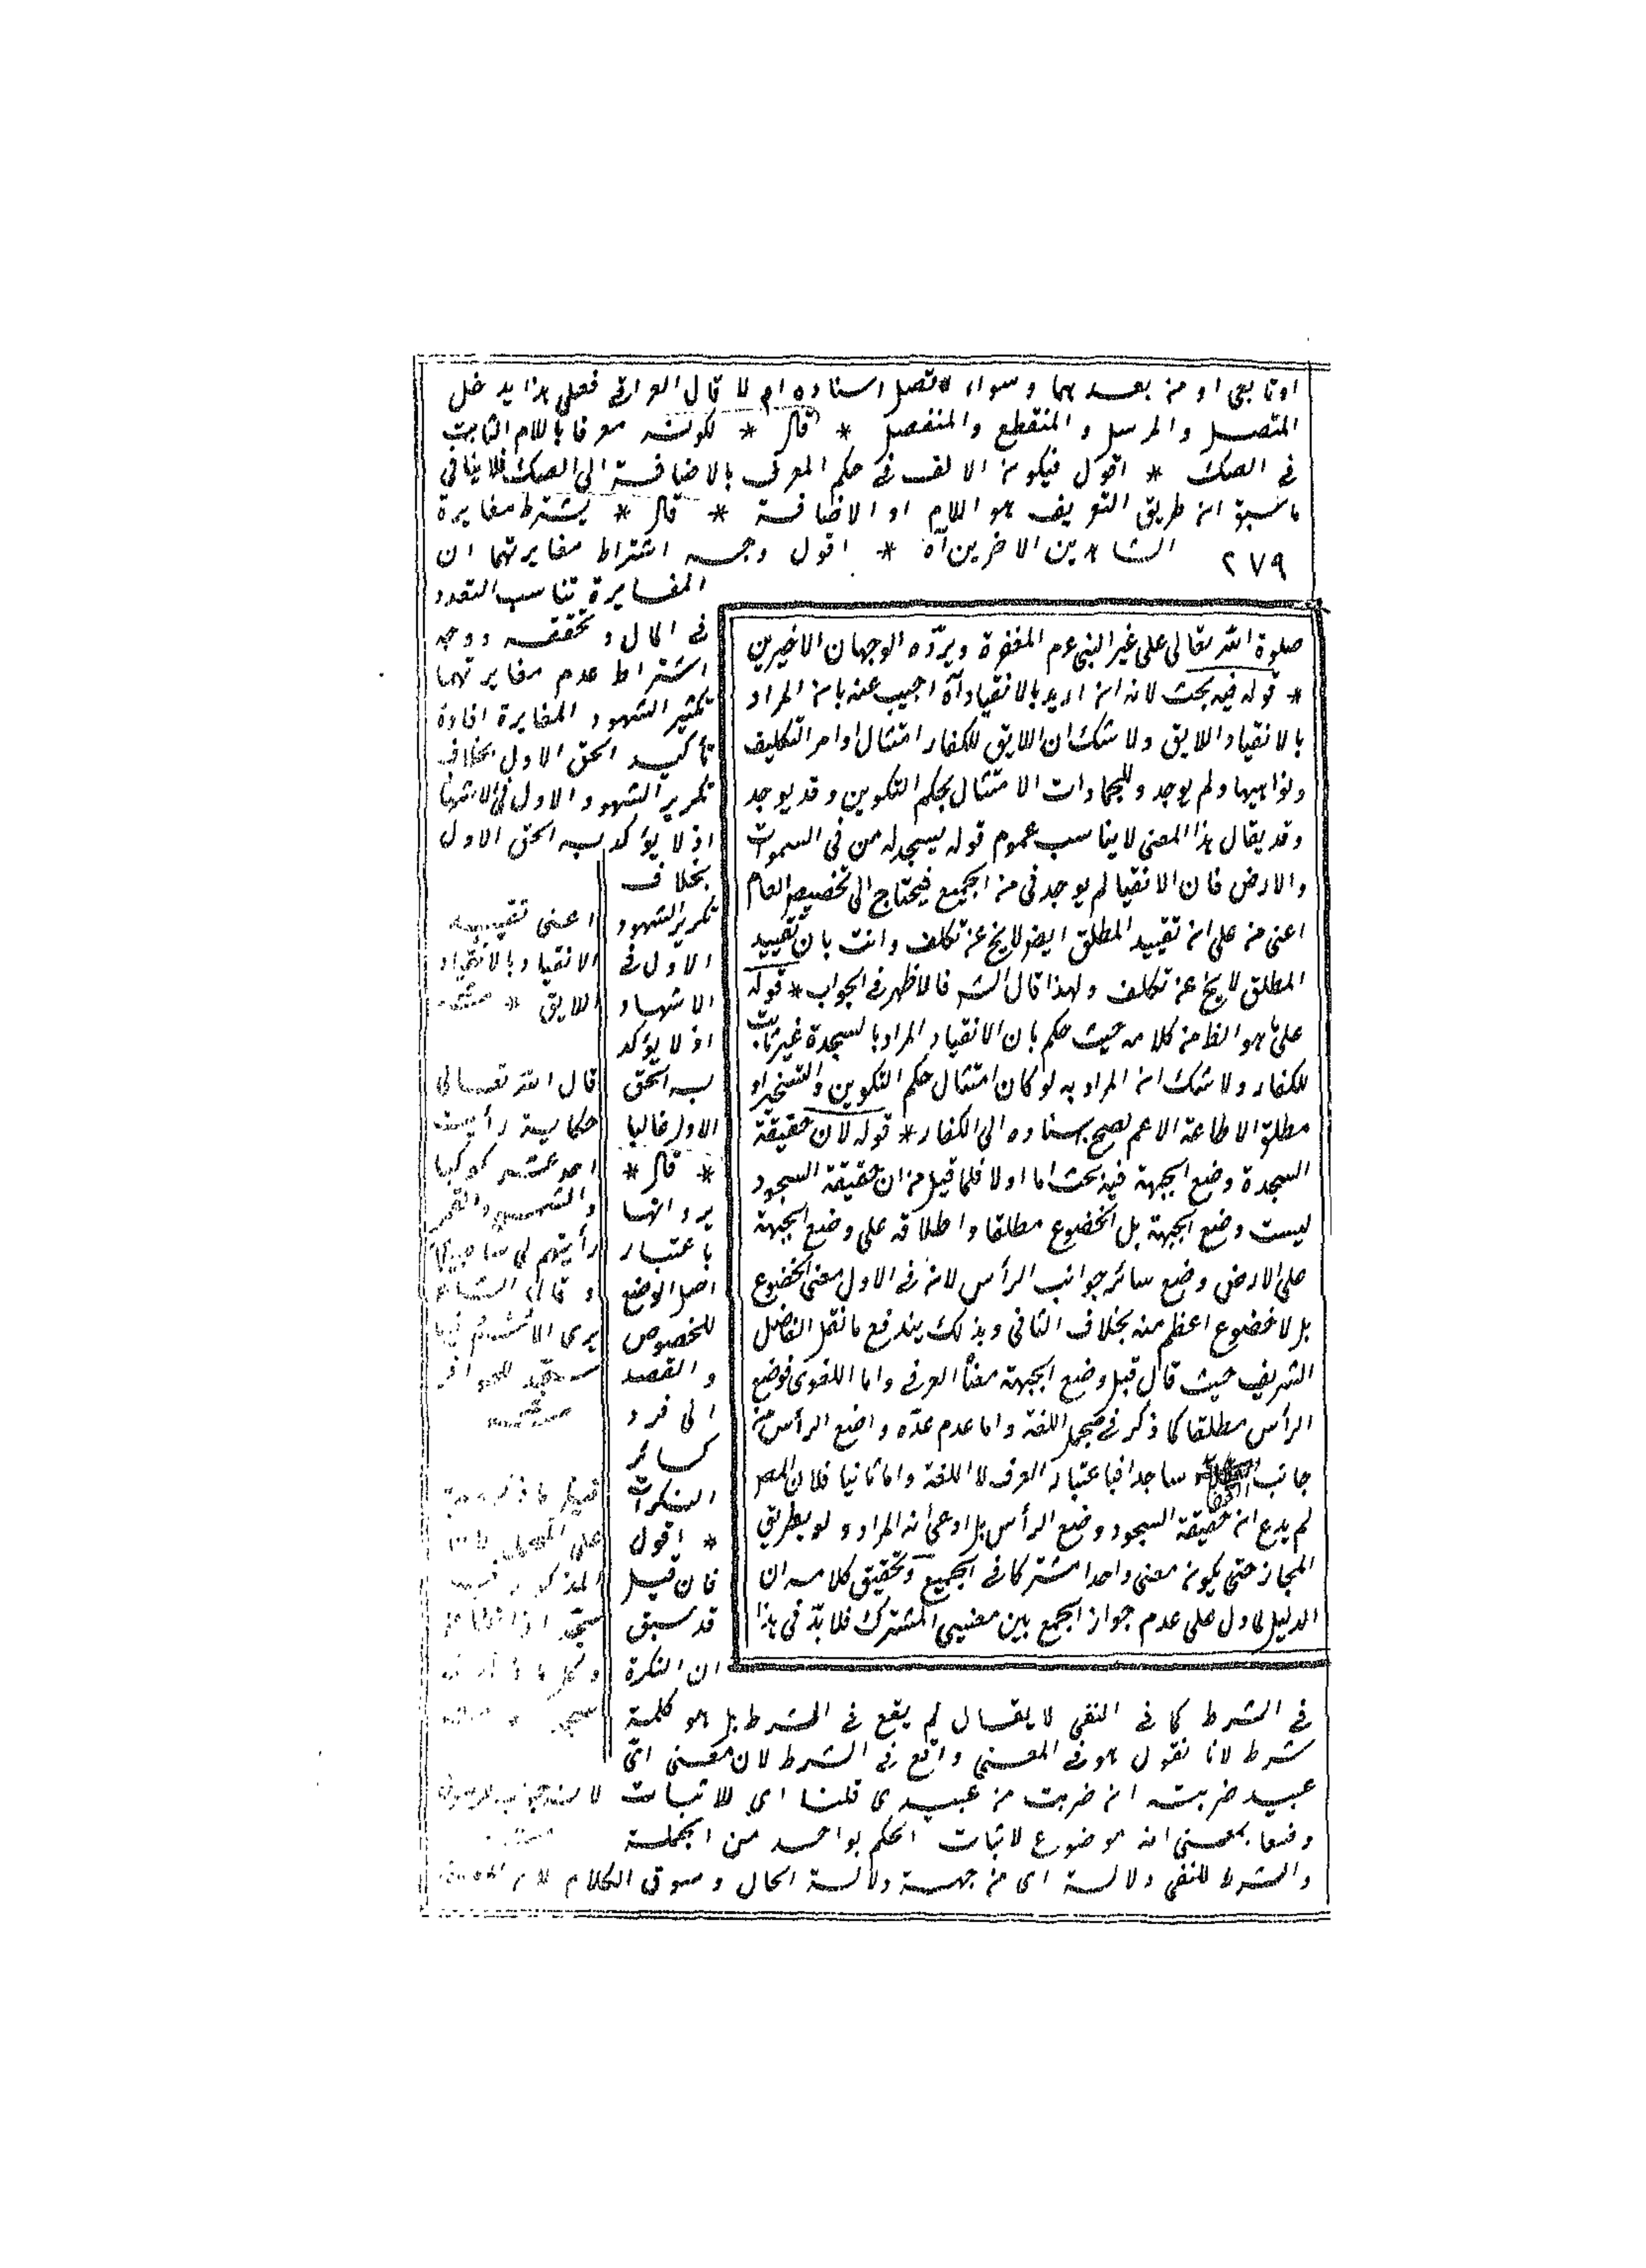 او تابعى او من بعد هما و سواء اتصل اسناده ام لا قال العراقى فعلى هذا يدخل
المتصل والمرسل و المنقطع والمنفصل * قال * لكونه معرفا باللام الثابت
فى الصك * اقول فيكون الالف فى حكم المعرف بالاضافة الى الصك فلا ينافى
ما سبق ان طريق التعريف هو اللام او الاضافة * قال * يشترط مغايرة
٢٧٩ الشاهدين الاخرين آه * اقول وجه اشتراط مغايرتهما ان
المغايرة تناسب التعدد
فى المال و تحققه ووجه
اشتراط عدم مغايرتهما
تكثير الشهود المغايرة افادة
تأكيد الحق الاول بخلاف
تكرير الشهود الاول فى الاشهاد
اذ لا يؤكد به الحق الاول
بخلاف
تكرير الشهود
الاول فى
الاشهاد
اذ لا يؤكد
به الحق
الاول غالبا
* قال *
يرد انها
باعتبار
اصل الوضع
للخصوص
والقصد
الى فرد
كسائر
النكرات
* اقول
فان قيل
قد سبق
ان النكرة
فى الشرط كما فى النفى لا يقال لم يقع فى الشرط بل هو كلمة
شرط لانا نقول هو فى المعنى واقع فى الشرط لان معنى اىّ
عبيد ضربته ان ضربت من عبيدى قلنا اى للاثبات
وضعا بمعنى انه موضوع لاثبات الحكم بواحد من الجملة
والشرط للنفى دلالة اى من جهة دلالة الحال و سوق الكلام
صلوة الله تعالى على غير النبى عم المغفرة ويردّه الوجهان الاخيرين
* قوله فيه بحث لانه ان اريد بالانقياد آه اجيب عنه بان المراد
بالانقياد اللايق ولا شك ان اللايق للكفار امتثال اوامر التكليف
ونواهيها ولم يوجد وللجمادات الامتثال بحكم التكوين وقد يوجد
وقد يقال هذا المعنى لا يناسب عموم قوله يسجد له من فى السموات
والارض فان الانقيا لم يوجد فى من الجميع فيحتاج الى تخصيص العام
اعنى من على ان تقييد المطلق ايضا لا يخ عن تكلف وانت بان تقييد
المطلق لا يخ عن تكلف ولهذا قال الش فالاظهر فى الجواب * قوله
على ما هو الظ من كلامه حيث حكم بان الانقياد المراد بالسجدة غير ثابت
للكفار ولا شك ان المراد به لو كان امتثال حكم التكوين والتسخير او
مطلق الاطاعة الاعم لصح اسناده الى الكفار * قوله لان حقيقة
السجدة وضع الجبهة فيه بحث اما اولا فلما قيل من ان حقيقة السجود
ليست وضع الجبهة بل الخضوع مطلقا واطلاقه على وضع الجبهة
على الارض وضع سائر جوانب الرأس لان فى الاول معنى الخضوع
بل لا خضوع اعظم منه بخلاف الثانى وبذلك يندفع ما نقل الفاضل
الشريف حيث قال قيل وضع الجبهة معناه العرفى واما اللغوى فوضع
الرأس مطلقا كما ذكر فى مجمل اللغة واما عدم عدّه واضع الرأس من
جانب القفا ساجدا فباعتبار العرف لا اللغة واما ثانيا فلان المص
لم يدع ان حقيقة السجود وضع الرأس بل ادعى انه المراد ولو بطريق
المجاز حتى يكون معنى واحدا مشتركا فى الجميع وتحقيق كلامه ان
الدليل لما دل على عدم جواز الجمع بين معنيى المشترك فلا بدّ فى هذا
اعنى تقييد
الانقياد بالانقياد
اللايق *
قال الله تعالى
حكاية رأيت
احد عشر كوكبا
والشمس والقمر
رأيتهم لى ساجدين
و قال الشاعر